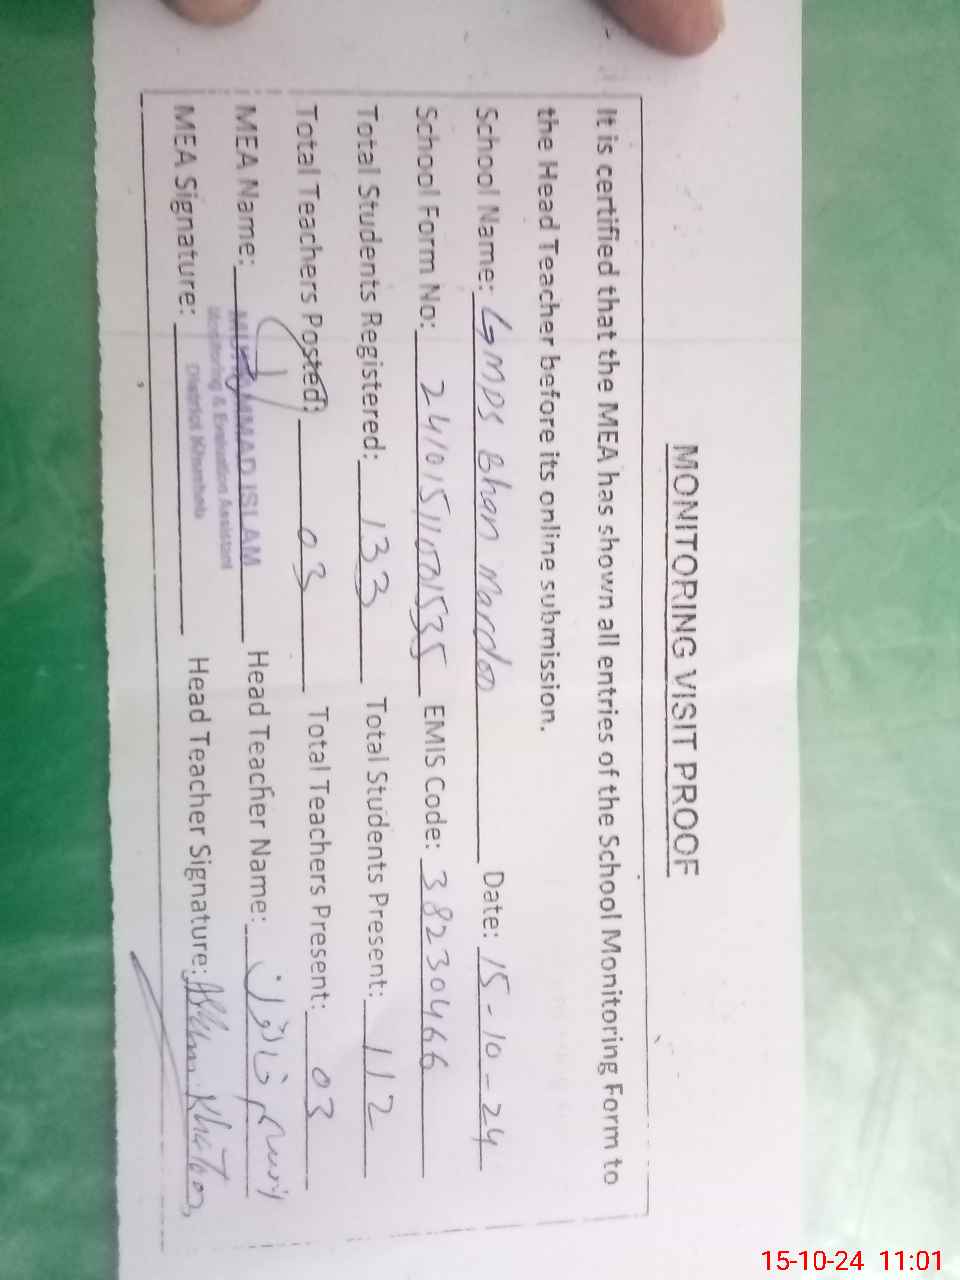 MONITORING VISIT PROOF
It is certified that the MEA has shown all entries of the School Monitoring Form to
the Head Teacher before its online submission.
School Name: GMPS Bhan Mardoo Date: 15-10-24
School Form No: 24101511001535 EMIS Code: 38230466
Total Students Registered: 133 Total Students Present: 112
Total Teachers Posted: 03 Total Teachers Present: 03
MEA Name: MUHAMMAD ISLAM Head Teacher Name:
Monitoring & Evaluation Assistant
District Khushab
MEA Signature: Head Teacher Signature: Khatoon
15-10-24 11:01